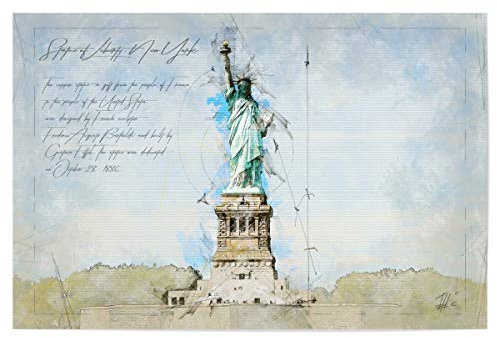 Statue of Liberty, New York
the copper statue a gift from the people of France
to the people of the United States
was designed by French sculptor
Frédéric Auguste Bartholdi and built by
Gustave Eiffel. The statue was dedicated
on October 28, 1886